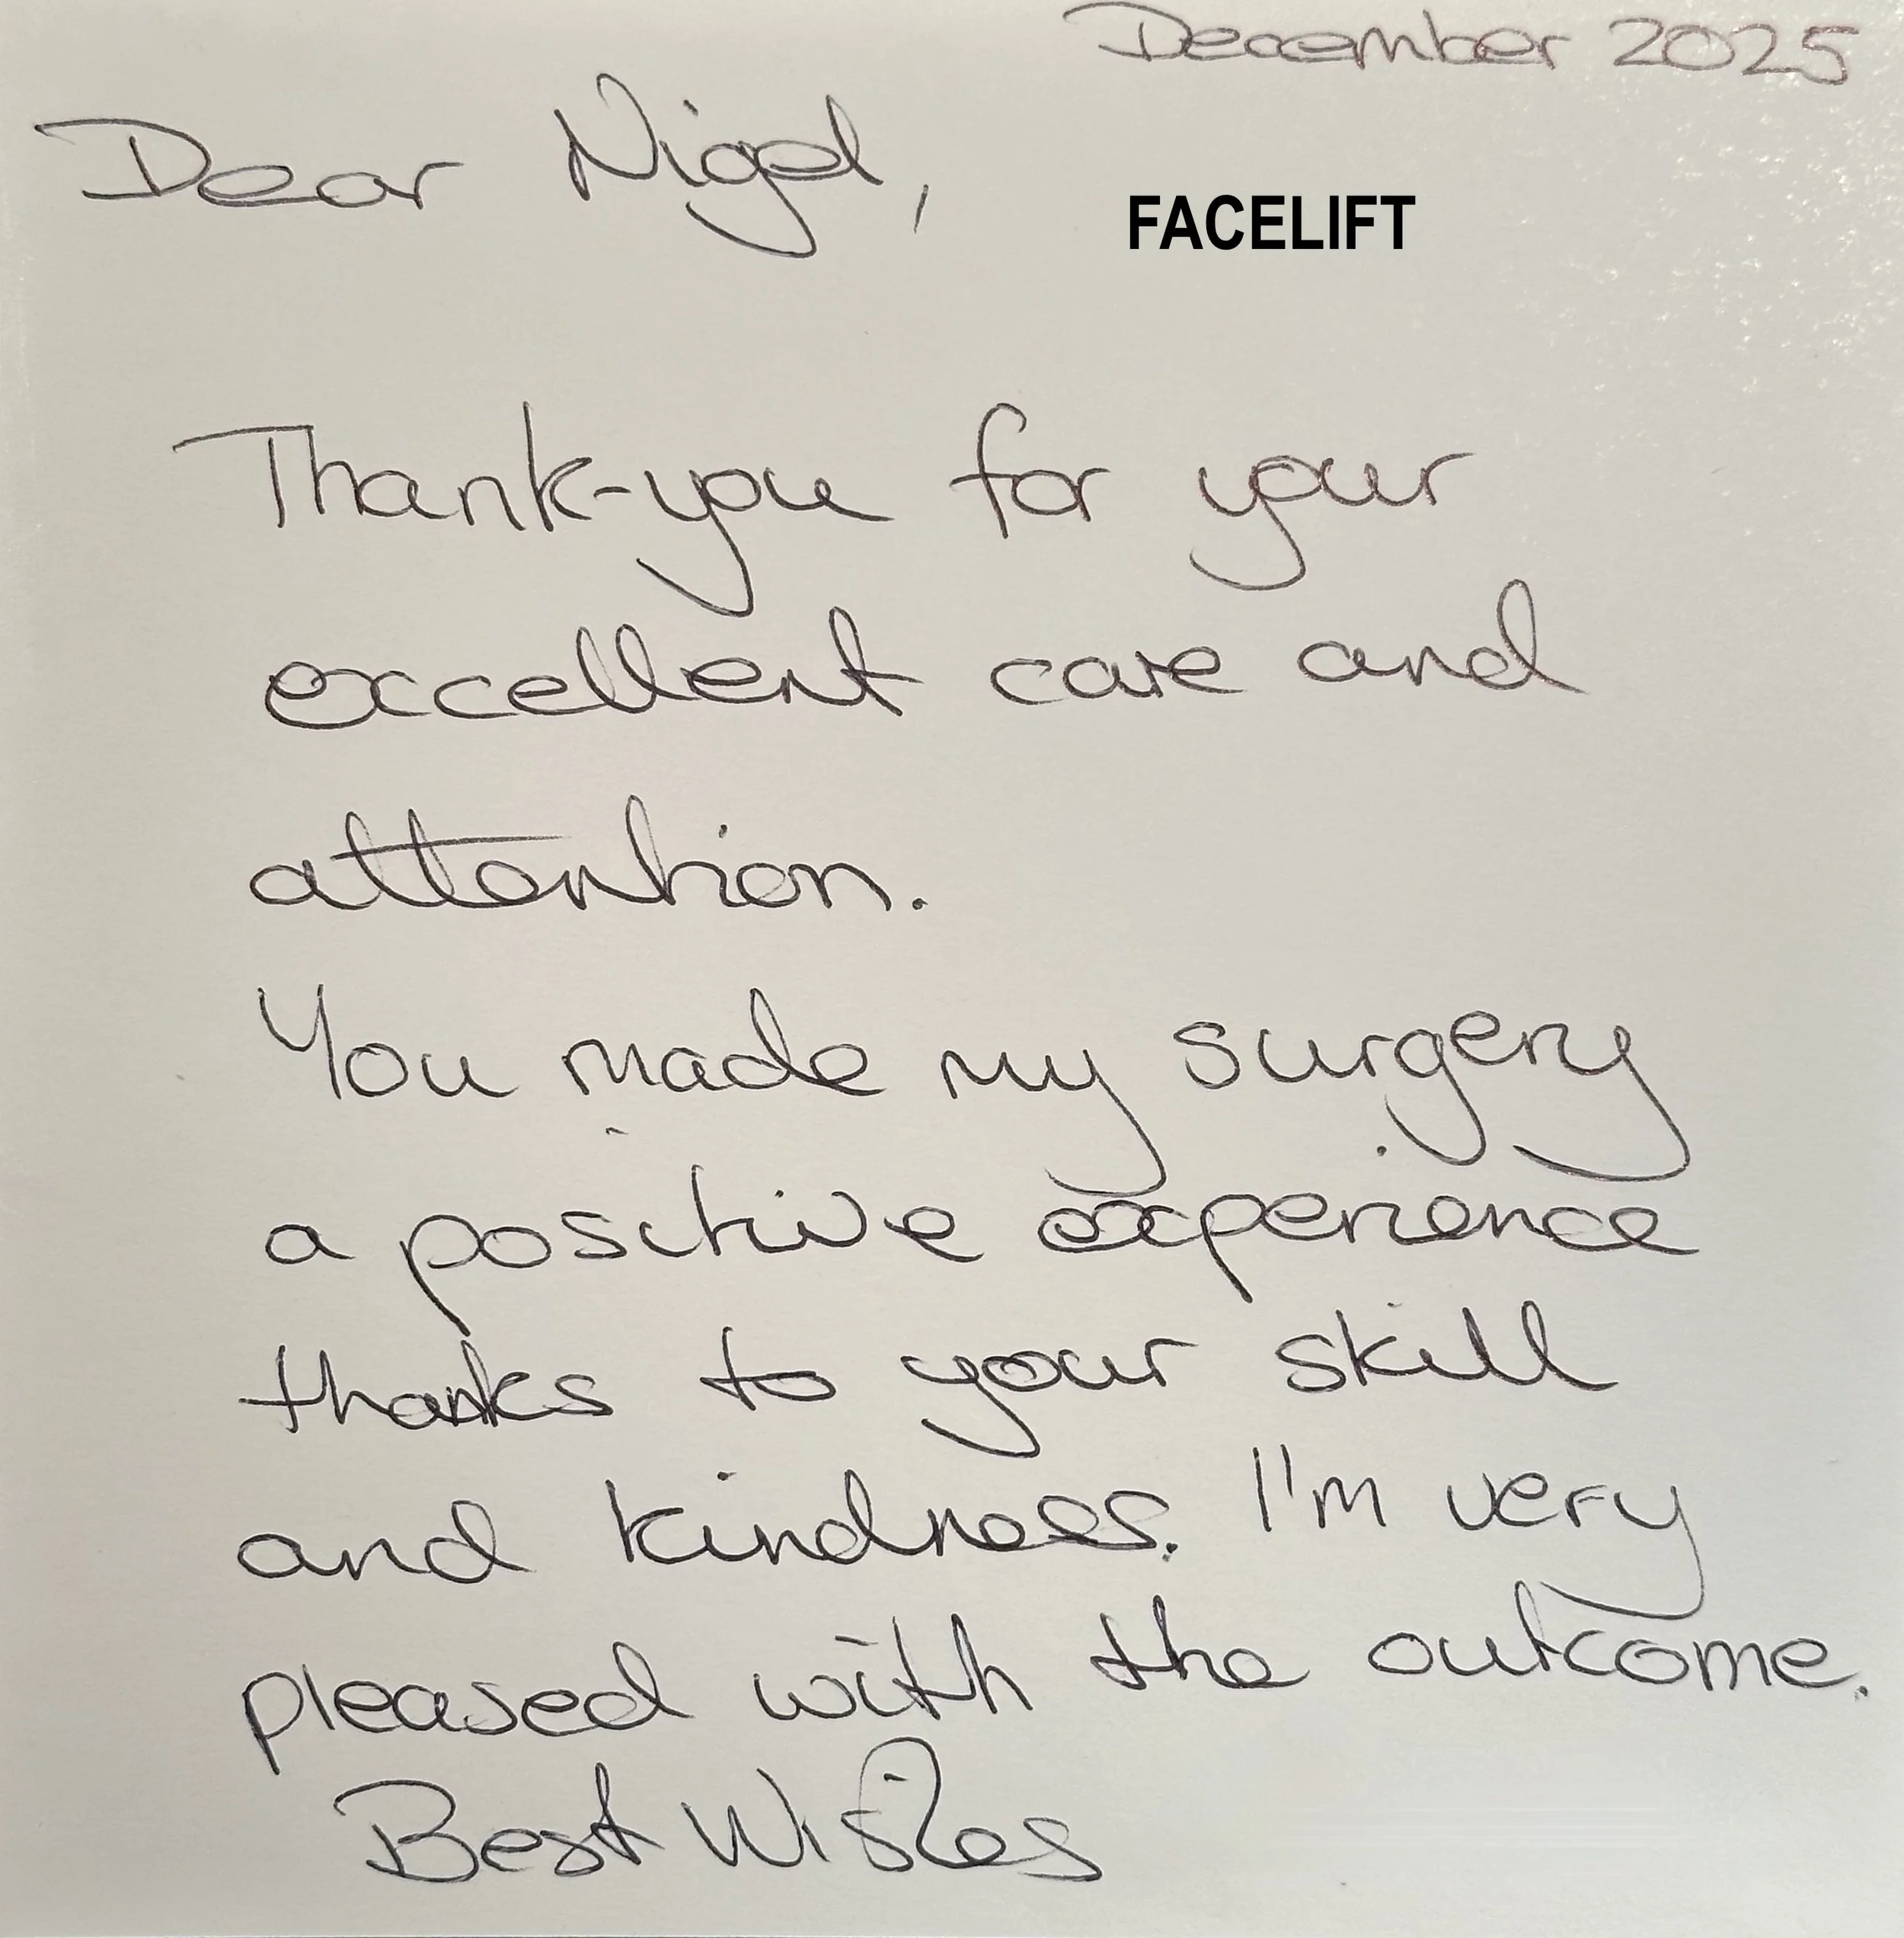 December 2025
Dear Nigel,
FACELIFT
Thank-you for your
excellent care and
attention.
You made my surgery
a positive experience
thanks to your skill
and kindness. I'm very
pleased with the outcome.
Best Wishes